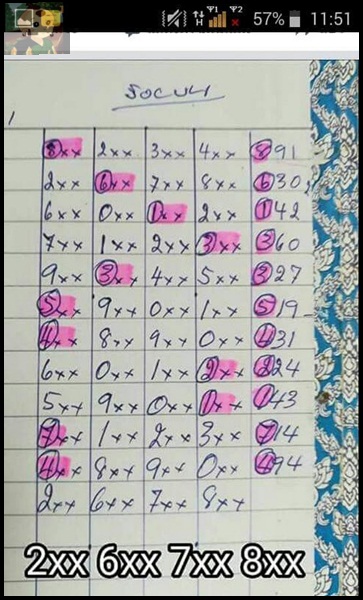 57% 11:51
8xx 2xx 3xx 4xx 891
2xx 6xx 7xx 8xx 630
6xx 0xx 1xx 2xx 142
7xx 1xx 2xx 3xx 360
9xx 3xx 4xx 5xx 327
5xx 9xx 0xx 1xx 519
4xx 8xx 9xx 0xx 431
6xx 0xx 1xx 2xx 224
5xx 9xx 0xx 1xx 143
7xx 1xx 2xx 3xx 714
4xx 8xx 9xx 0xx 494
2xx 6xx 7xx 8xx
2xx 6xx 7xx 8xx